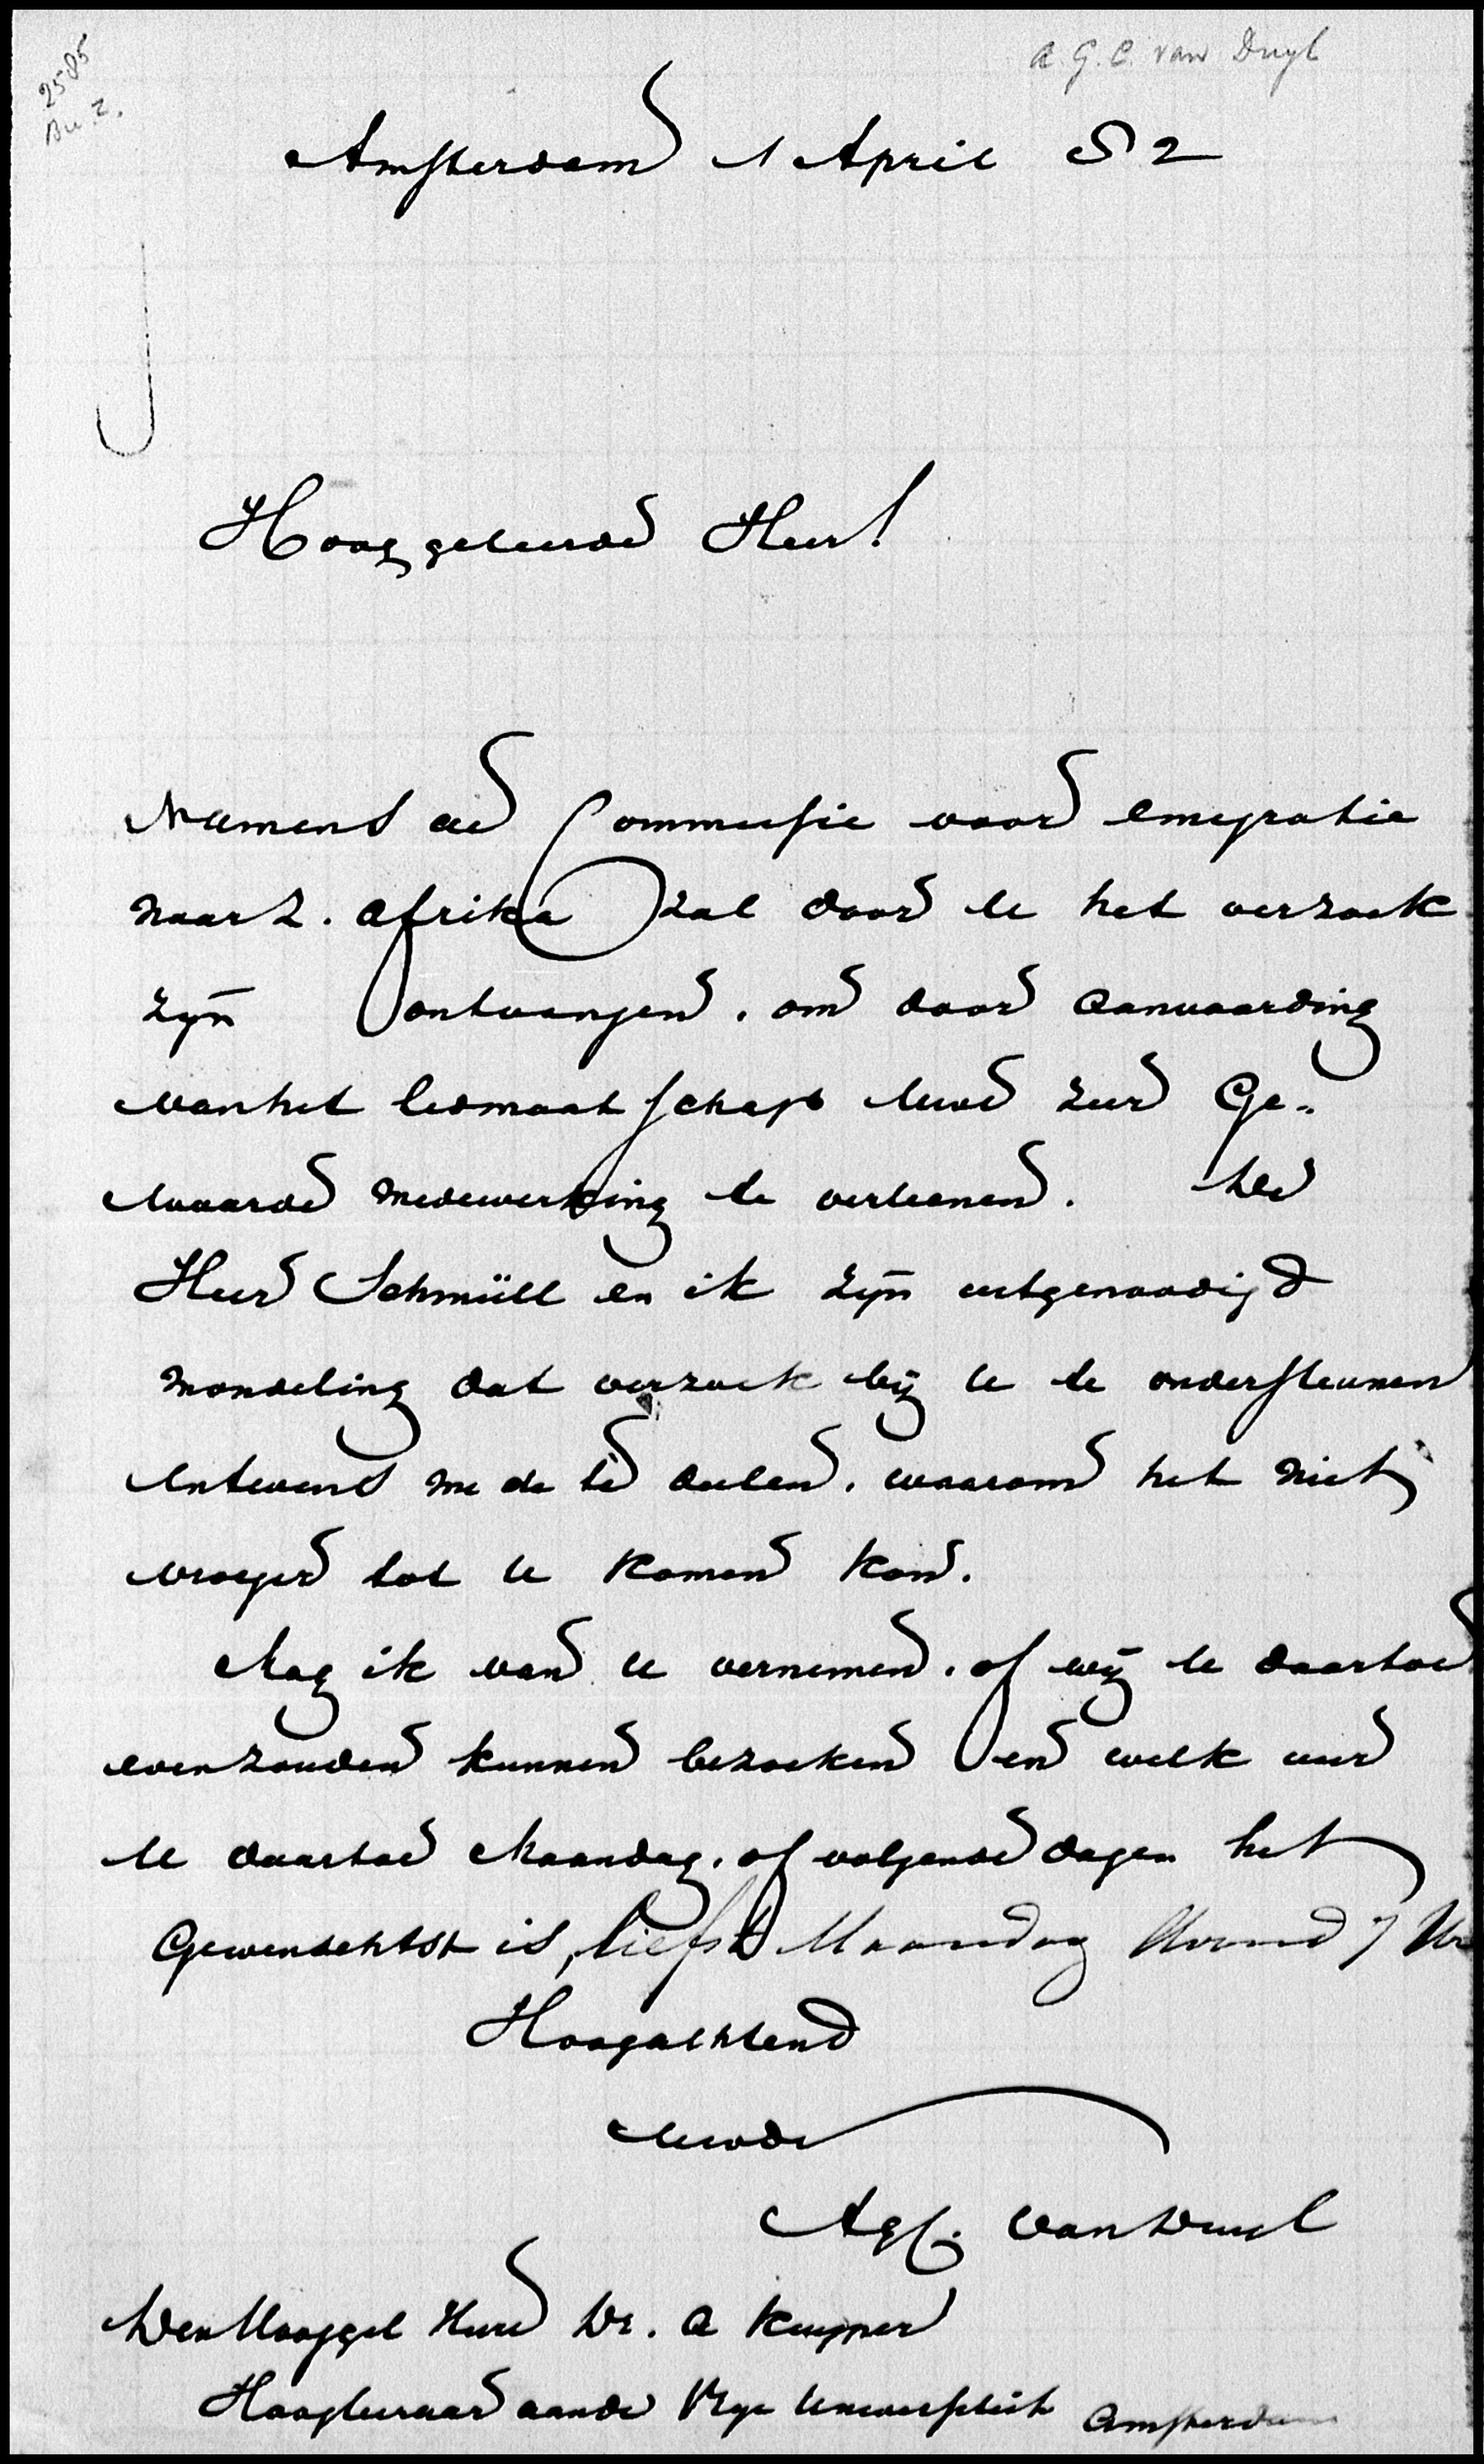 2585
Bu. 2.
A. G. C. van Duyl
Amsterdam 1 April 82
Hooggeleerde Heer!
Namens de Commissie voor emigratie
naar Z. Afrika zal door U het verzoek
zijn ontvangen, om door aanvaarding
van het lidmaatschap Uwe zeer Ge-
waarde medewerking te verleenen. De
Heer Schmüll en ik zijn uitgenoodigd
mondeling dat verzoek bij U te ondersteunen
en tevens mede te deelen, waarom het niet
vroeger tot U komen kon.
Mag ik van U vernemen, of wij U daartoe
even zouden kunnen bezoeken en welk uur
U daartoe Maandag, of volgende dagen het
Gewenschtst is, liefst Maandag Avond 7 Ur
Hoogachtend
Uwdr
AGC. van Duyl
Den Hooggel Heer Dr. A Kuyper
Hoogleeraar aan de Vrije Universiteit Amsterdam